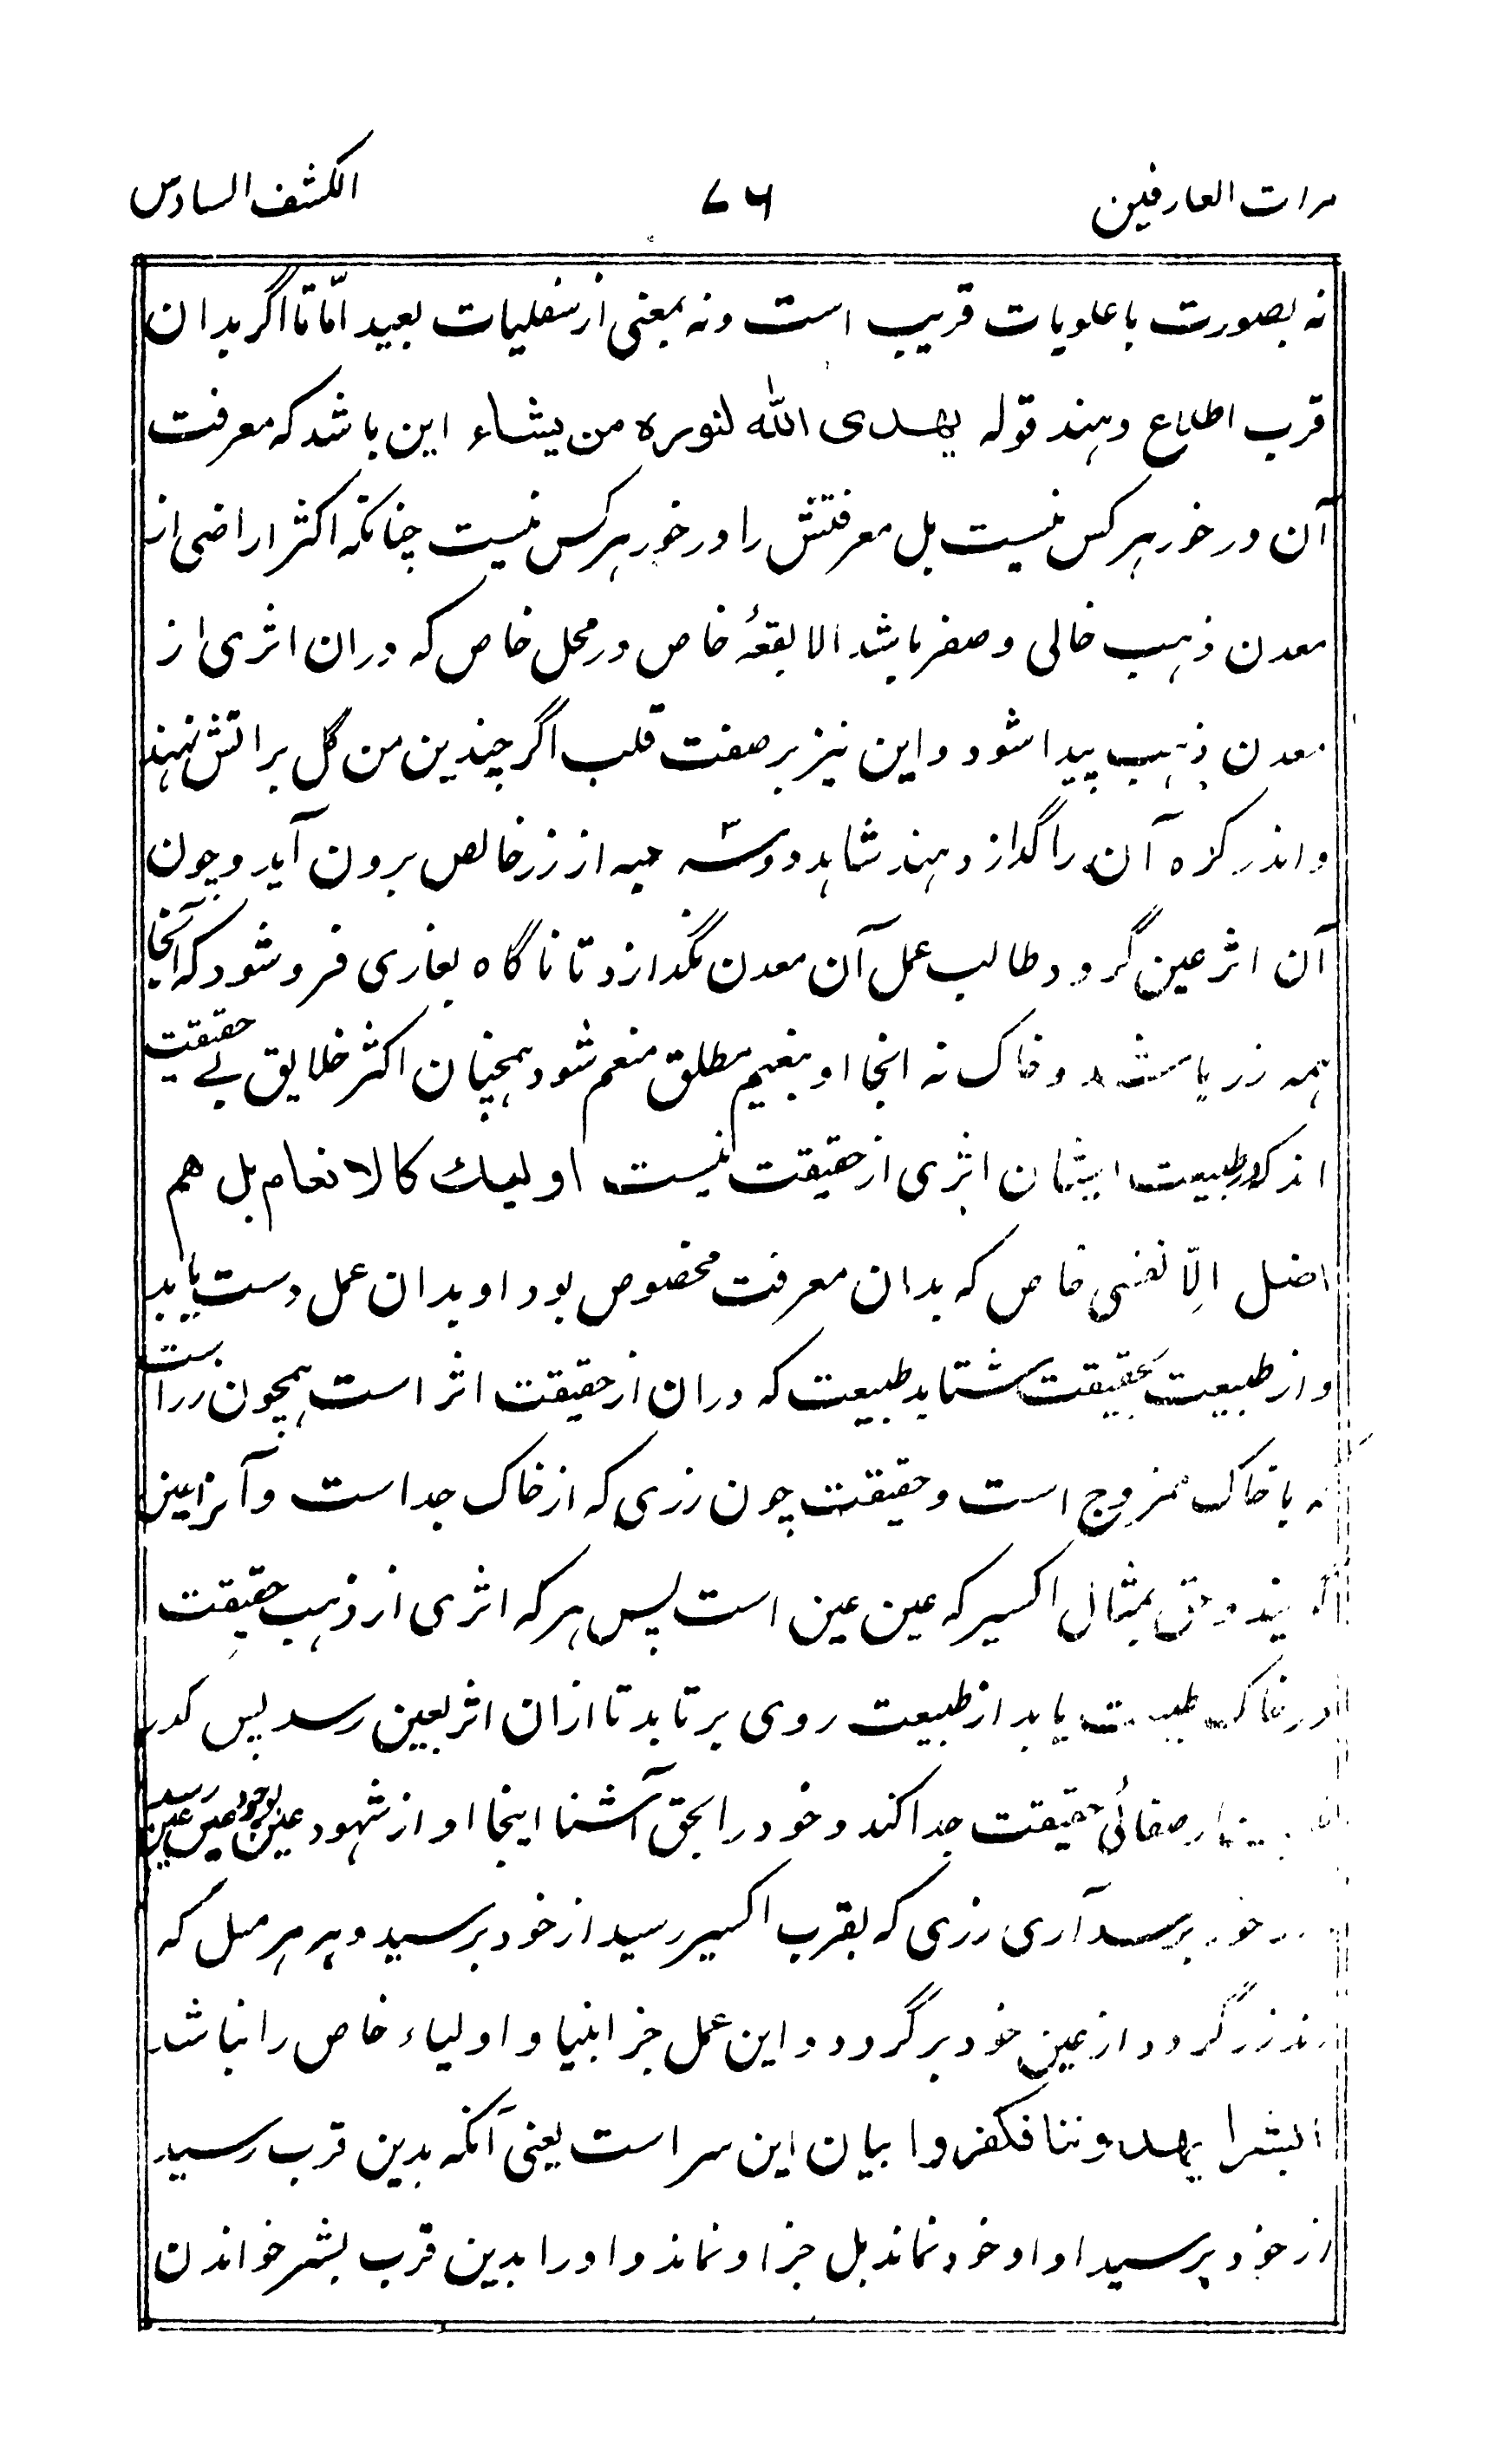 مرات العارفین ۷۶ الکشف السادس
نه بصورت با علویات قریب است ونه بمعنی از سفلیات بعید امّا تا اگر بدان
قرب اطلاع دهند قوله یهدی الله لنوره من یشاء این باشد که معرفت
آن در خور هرکس نیست بل معرفتش را در خور هرکس نیست چنانکه اکثر اراضی از
معدن ذهب خالی و صفر باشد الا بقعهٔ خاص در محل خاص که دران اثری از
معدن ذهب پیدا شود و این نیز بر صفت قلب اگر چندین من گل بر اتش نهند
و اندر کزه آن را گداز دهند شاید دوسه حبه از زر خالص برون آید و چون
آن اثر عین گردد طالب عمل آن معدن نگذارد تا ناگاه بغاری فرو شود که آنجا
همه زر باشد و خاک نه انجا او بنعیم مطلق منعم شود همچنان اکثر خلایق بے حقیقت
اند که در طبیعت ایشان اثری از حقیقت نیست اولیك کالانعام بل هم
اضل الّا نفسی خاص که بدان معرفت مخصوص بود او بدان عمل دست یابد
و از طبیعت بحقیقت شتابد طبیعت که دران از حقیقت اثر است همچون زر است
که با خاک ممزوج است و حقیقت چون زری که از خاک جداست و آنرا عین
گویند و حق بمثال اکسیر که عین عین است پس هرکه اثری از ذهب حقیقت
در خاک طبیعت یابد از طبیعت روی برتابد تا ازان اثر بعین رسد پس کدر
از صفائی حقیقت جدا کند و خود را بحق آشنا اینجا او از شهود عین بوجود عین عین رسد
خود برسد آری زری که بقرب اکسیر رسید از خود برسید و هر مس که
زر گردد از عین خود برگردد و این عمل جز انبیا و اولیاء خاص را نباشد
ابشرا یهدوننا فکفروا بیان این سر است یعنی آنکه بدین قرب رسید
از خود برسید او او خود نماند بل جز او نماند و او را بدین قرب بشر خواندن